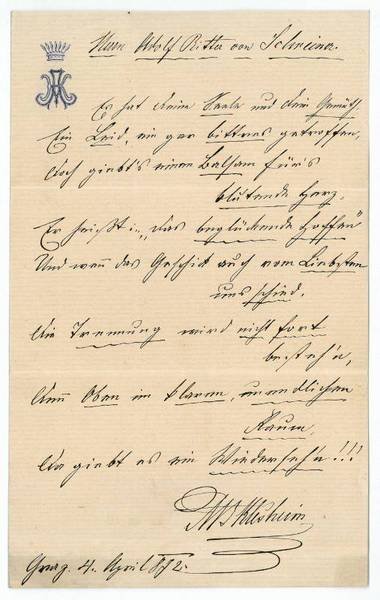 Herrn Adolf Ritter von Schreiner.
Es hat deine Seele und dein Gemüth
Ein Leid, ein gar bittres getroffen,
Doch giebt's einen Balsam für's
blutende Herz,
Er heißt: „das beglückende Hoffen"
Und wenn das Geschick auch vom Liebsten
uns schied,
Die Trennung wird nicht fort
besteh'n,
Denn Oben im klaren, unendlichen
Raum,
Da giebt es ein Wiederseh'n!!!
Klesheim
Graz. 4. April